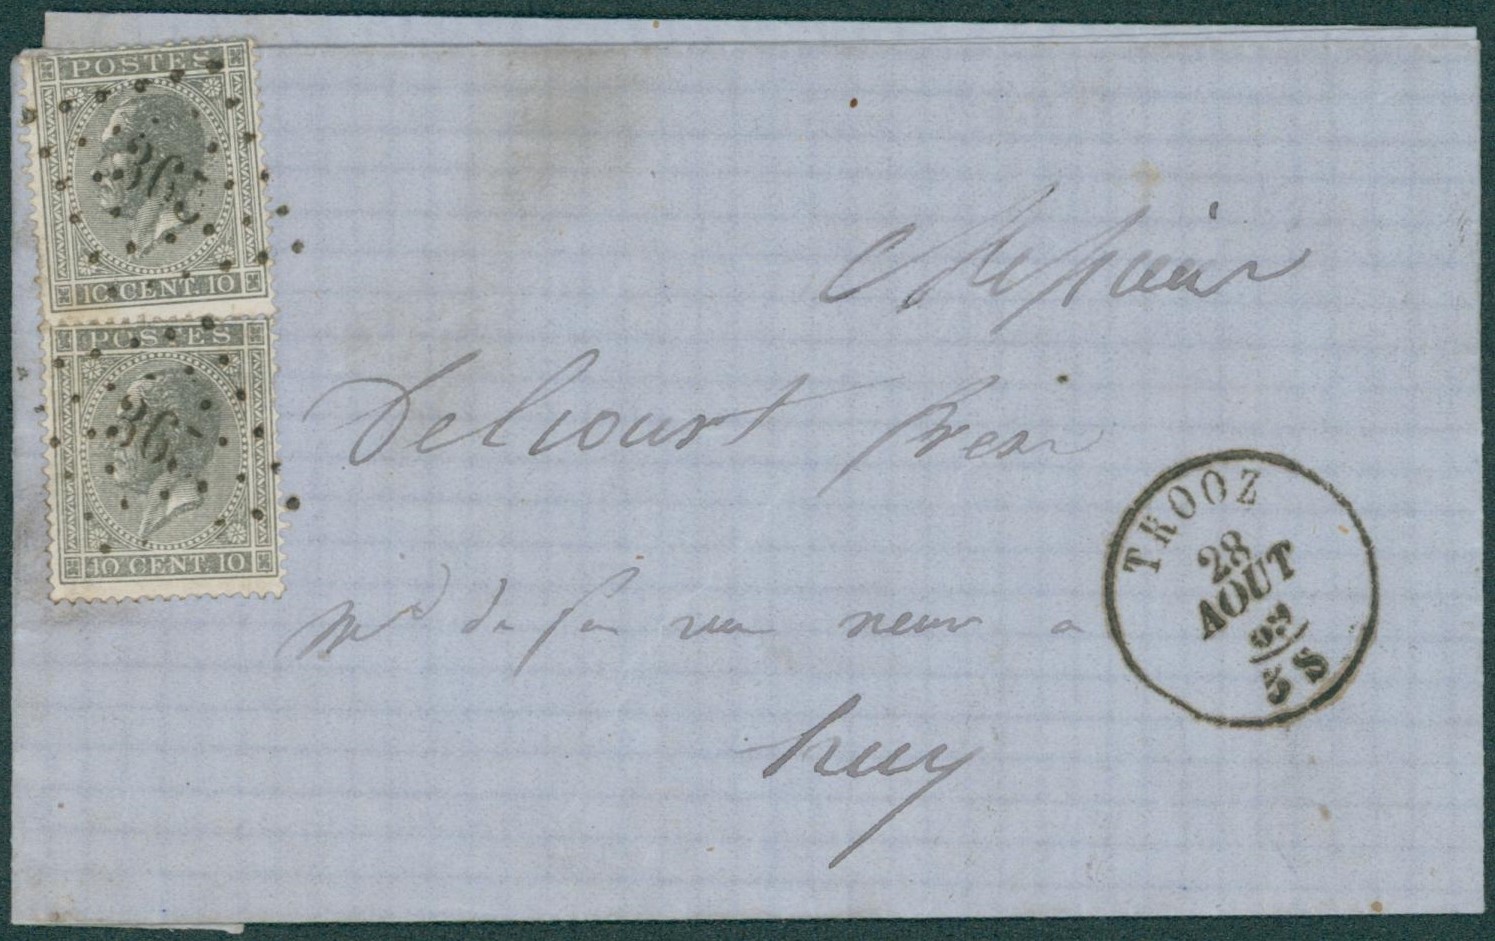 POSTES
365
10 CENT. 10
POSTES
365
10 CENT. 10
Messieurs
Delcourt frères
Md de fer rue neuve a
huy
TROOZ
28
AOUT
5 S